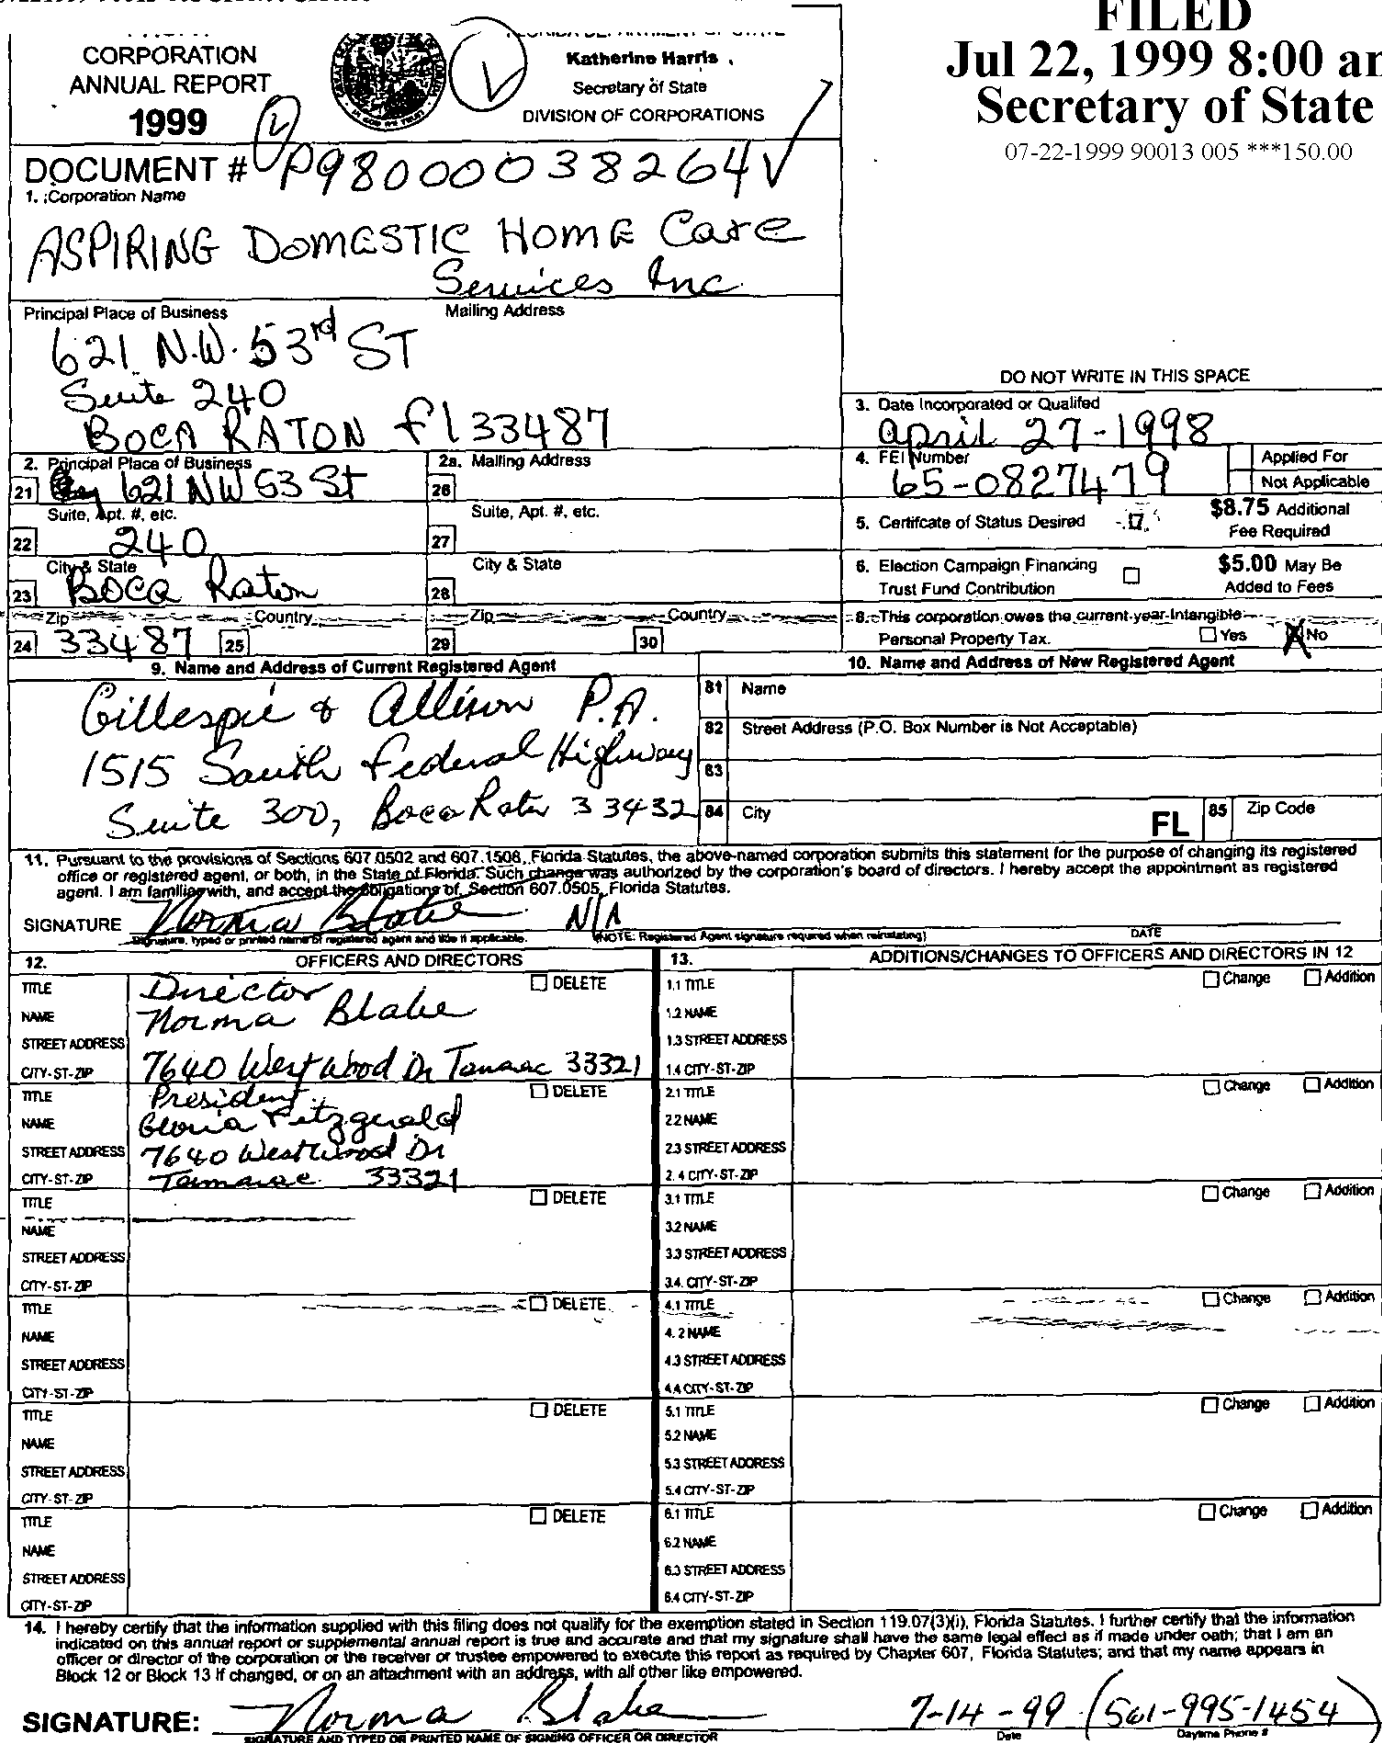 FILED
Jul 22, 1999 8:00 am
Secretary of State
07-22-1999 90013 005 ***150.00
CORPORATION
ANNUAL REPORT
1999
Katherine Harris
Secretary of State
DIVISION OF CORPORATIONS
DOCUMENT # P98000038264
1. Corporation Name
ASPIRING DOMESTIC HOME Care
Services Inc
Principal Place of Business Mailing Address
621 N.W. 53rd ST
Suite 240
BOCA RATON fl 33487
DO NOT WRITE IN THIS SPACE
3. Date Incorporated or Qualifed
april 27-1998
2. Principal Place of Business 2a. Mailing Address
21 621 NW 53 St 26
4. FEI Number Applied For
65-0827479 Not Applicable
Suite, Apt. #, etc. Suite, Apt. #, etc.
22 240 27
5. Certifcate of Status Desired $8.75 Additional
Fee Required
City & State City & State
23 Boca Raton 28
6. Election Campaign Financing $5.00 May Be
Trust Fund Contribution Added to Fees
Zip Country Zip Country
24 33487 25 29 30
8. This corporation owes the current year Intangible
Personal Property Tax. Yes No
9. Name and Address of Current Registered Agent
Gillespie & Allison P.A.
1515 South Federal Highway
Suite 300, Boca Raton 33432
10. Name and Address of New Registered Agent
81 Name
82 Street Address (P.O. Box Number is Not Acceptable)
83
84 City FL 85 Zip Code
11. Pursuant to the provisions of Sections 607.0502 and 607.1508, Florida Statutes, the above-named corporation submits this statement for the purpose of changing its registered
office or registered agent, or both, in the State of Florida. Such change was authorized by the corporation's board of directors. I hereby accept the appointment as registered
agent. I am familiar with, and accept the obligations of, Section 607.0505, Florida Statutes.
SIGNATURE Norma Blake N/A
Signature, typed or printed name of registered agent and title if applicable. (NOTE: Registered Agent signature required when reinstating) DATE
12. OFFICERS AND DIRECTORS
TITLE Director DELETE
NAME Norma Blake
STREET ADDRESS
CITY-ST-ZIP 7640 Westwood Dr Tamarac 33321
TITLE President DELETE
NAME Gloria Fitzgerald
STREET ADDRESS 7640 Westwood Dr
CITY-ST-ZIP Tamarac 33321
TITLE DELETE
NAME
STREET ADDRESS
CITY-ST-ZIP
TITLE DELETE
NAME
STREET ADDRESS
CITY-ST-ZIP
TITLE DELETE
NAME
STREET ADDRESS
CITY-ST-ZIP
TITLE DELETE
NAME
STREET ADDRESS
CITY-ST-ZIP
13. ADDITIONS/CHANGES TO OFFICERS AND DIRECTORS IN 12
1.1 TITLE Change Addition
1.2 NAME
1.3 STREET ADDRESS
1.4 CITY-ST-ZIP
2.1 TITLE Change Addition
2.2 NAME
2.3 STREET ADDRESS
2.4 CITY-ST-ZIP
3.1 TITLE Change Addition
3.2 NAME
3.3 STREET ADDRESS
3.4. CITY-ST-ZIP
4.1 TITLE Change Addition
4.2 NAME
4.3 STREET ADDRESS
4.4 CITY-ST-ZIP
5.1 TITLE Change Addition
5.2 NAME
5.3 STREET ADDRESS
5.4 CITY-ST-ZIP
6.1 TITLE Change Addition
6.2 NAME
6.3 STREET ADDRESS
6.4 CITY-ST-ZIP
14. I hereby certify that the information supplied with this filing does not qualify for the exemption stated in Section 119.07(3)(i), Florida Statutes. I further certify that the information
indicated on this annual report or supplemental annual report is true and accurate and that my signature shall have the same legal effect as if made under oath; that I am an
officer or director of the corporation or the receiver or trustee empowered to execute this report as required by Chapter 607, Florida Statutes; and that my name appears in
Block 12 or Block 13 if changed, or on an attachment with an address, with all other like empowered.
SIGNATURE: Norma Blake 7-14-99 (561-995-1454)
SIGNATURE AND TYPED OR PRINTED NAME OF SIGNING OFFICER OR DIRECTOR Date Daytime Phone #